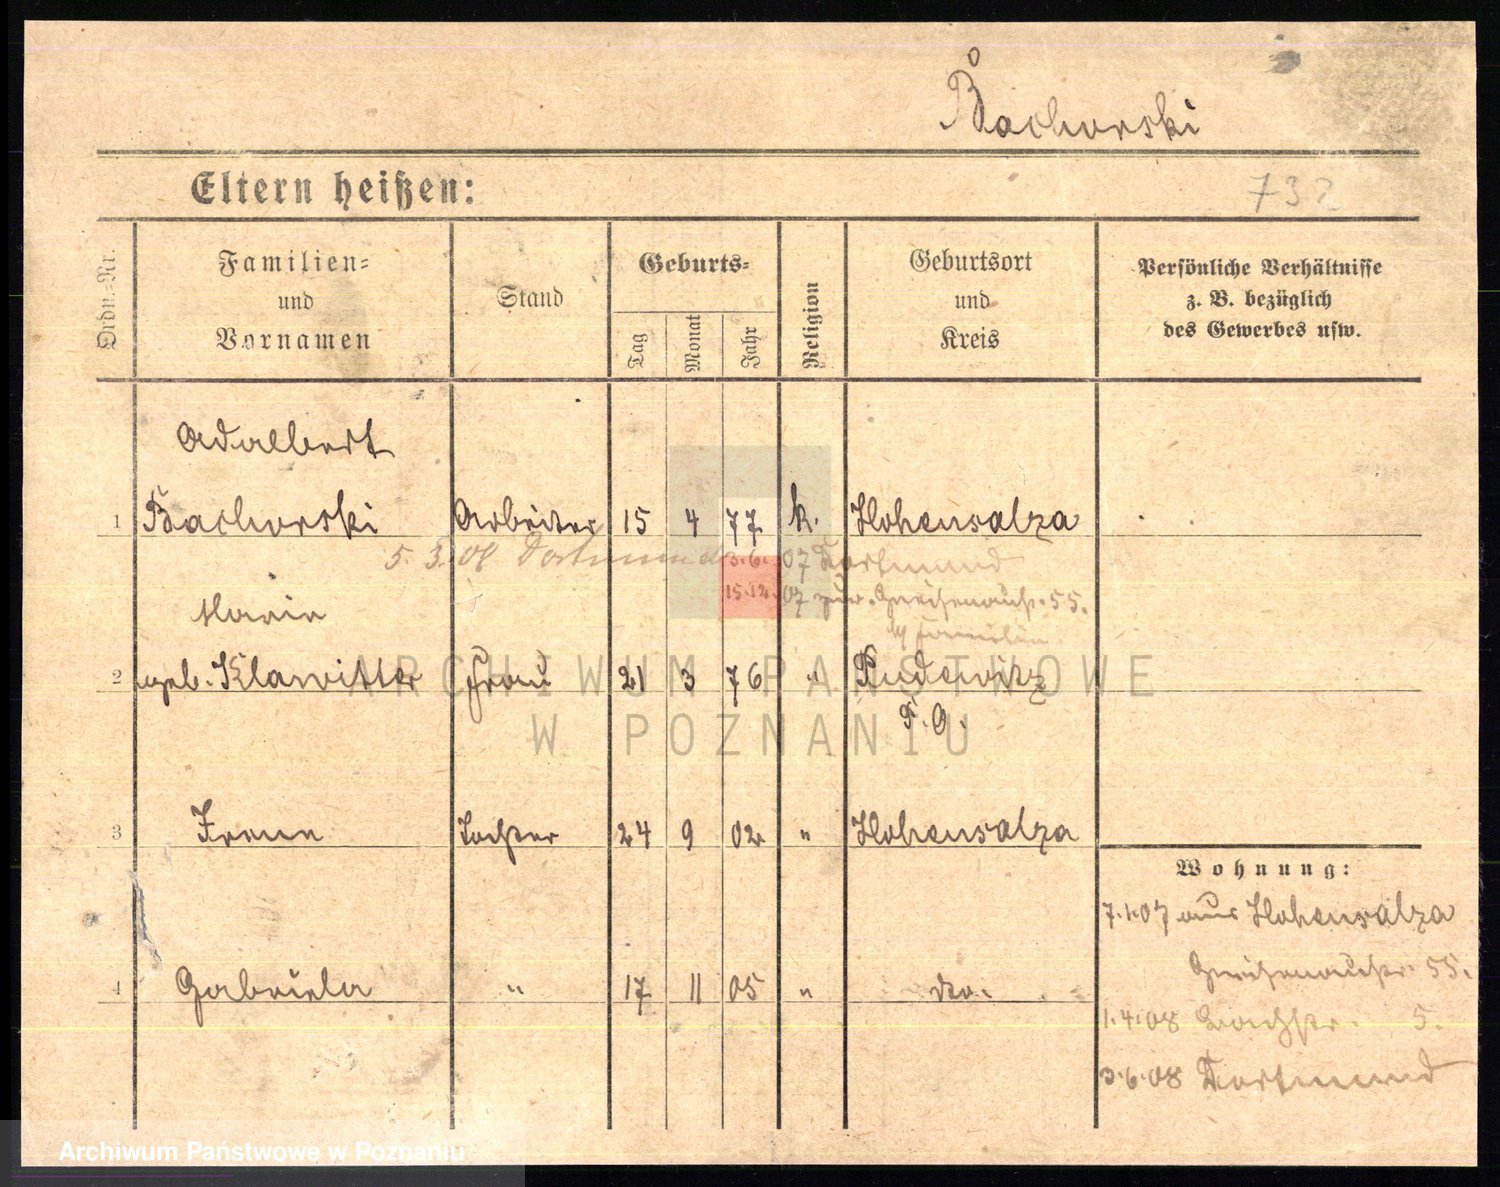 Bachorski
Eltern heißen:
732
Ordn.-Nr.
Familien-
und
Vornamen
Stand
Geburts-
Tag
Monat
Jahr
Religion
Geburtsort
und
Kreis
Persönliche Verhältnisse
z. B. bezüglich
des Gewerbes usw.
Adalbert
1 Bachorski Arbeiter 15 4 77 k. Hohensalza
5. 3. 08 Dortmund 3.6. 07 Dortmund
15.12. 07 zur. Gneisenaustr. 55.
z/ Familie
Marie
2 geb. Klawitter Frau 21 3 76 " Pudewitz
P. O.
3 Irene Tochter 24 9 02 " Hohensalza
Wohnung:
7.1.07 aus Hohensalza
Gneisenaustr. 55.
4 Gabriela " 17 11 05 " do.
1.4.08 Bachstr. 5.
3.6.08 Dortmund
ARCHIWUM PAŃSTWOWE
W POZNANIU
Archiwum Państwowe w Poznaniu